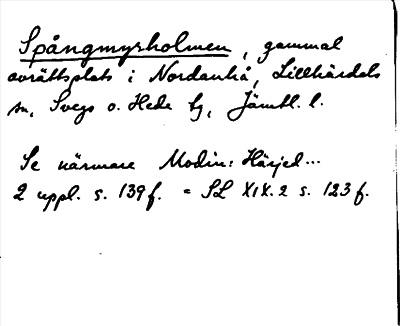 Spångmyrholmen, gammal
avrättsplats i Nordanhå, Lillhärdals
sn, Svegs o. Hede tg, Jämtl. l.
Se närmare Modin: Härjed...
2 uppl. s. 139 f. = SL XIX. 2 s. 123 f.